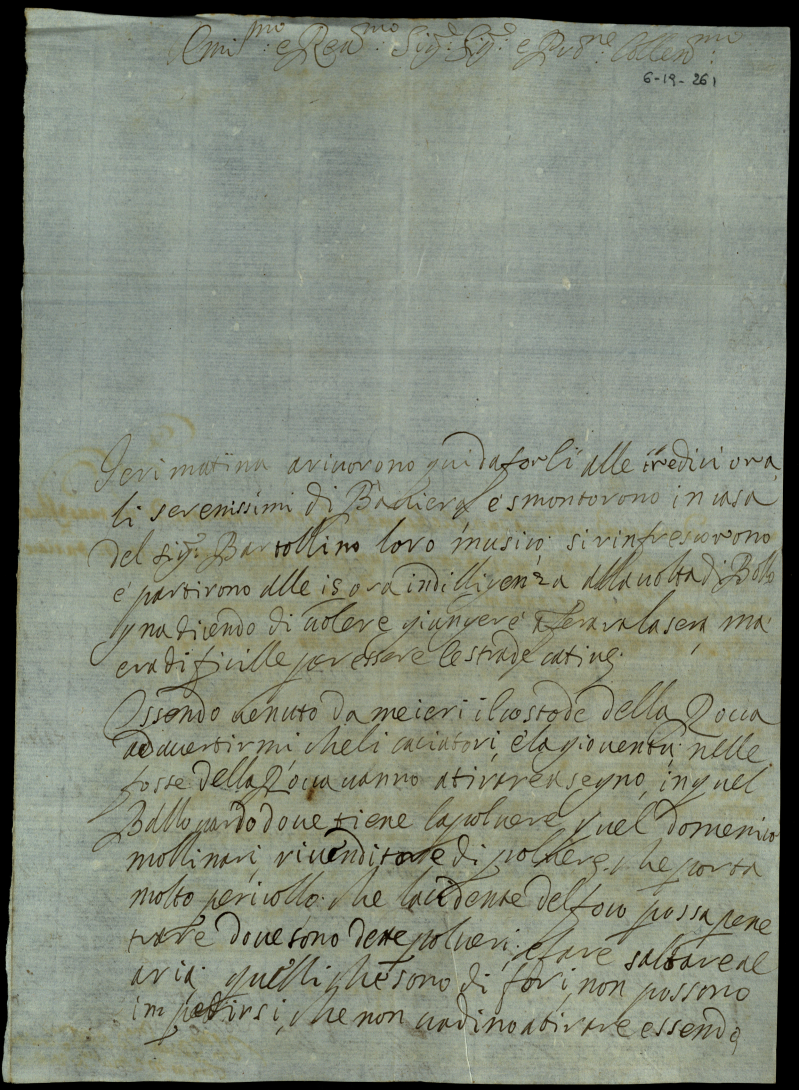 Em:mo e Reu:mo Sig:e Sig:e e Pro:ne Collen:mo
6-19-261
Ieri matina arivorono qui da forlì alle tredici ora
li serenissimi di Baviera e smontorono in casa
del sig:e Bartollino loro musico: si rinfrescorono
e partirono alle 15 ora in dilligenza alla volta di Bollo
gna dicendo di volere giungere a ferara la sera, ma
era dificille per essere le strade cative.
Essendo venuto da me ieri il costode della Roca
ad avertirmi che li caciatori, e la gioventù nelle
fosse della Roca vanno a tirare a segno, in quel
Balloardo dove tiene la polvere quel domenico
mollinari rivenditore di polvere, che porta
molto pericollo: che l'acidente del foco possa pene
trare dove sono dette polveri: e fare saltare al
aria: quelli che sono di fori, non possono
impedirsi, che non vadino a tirare essendo